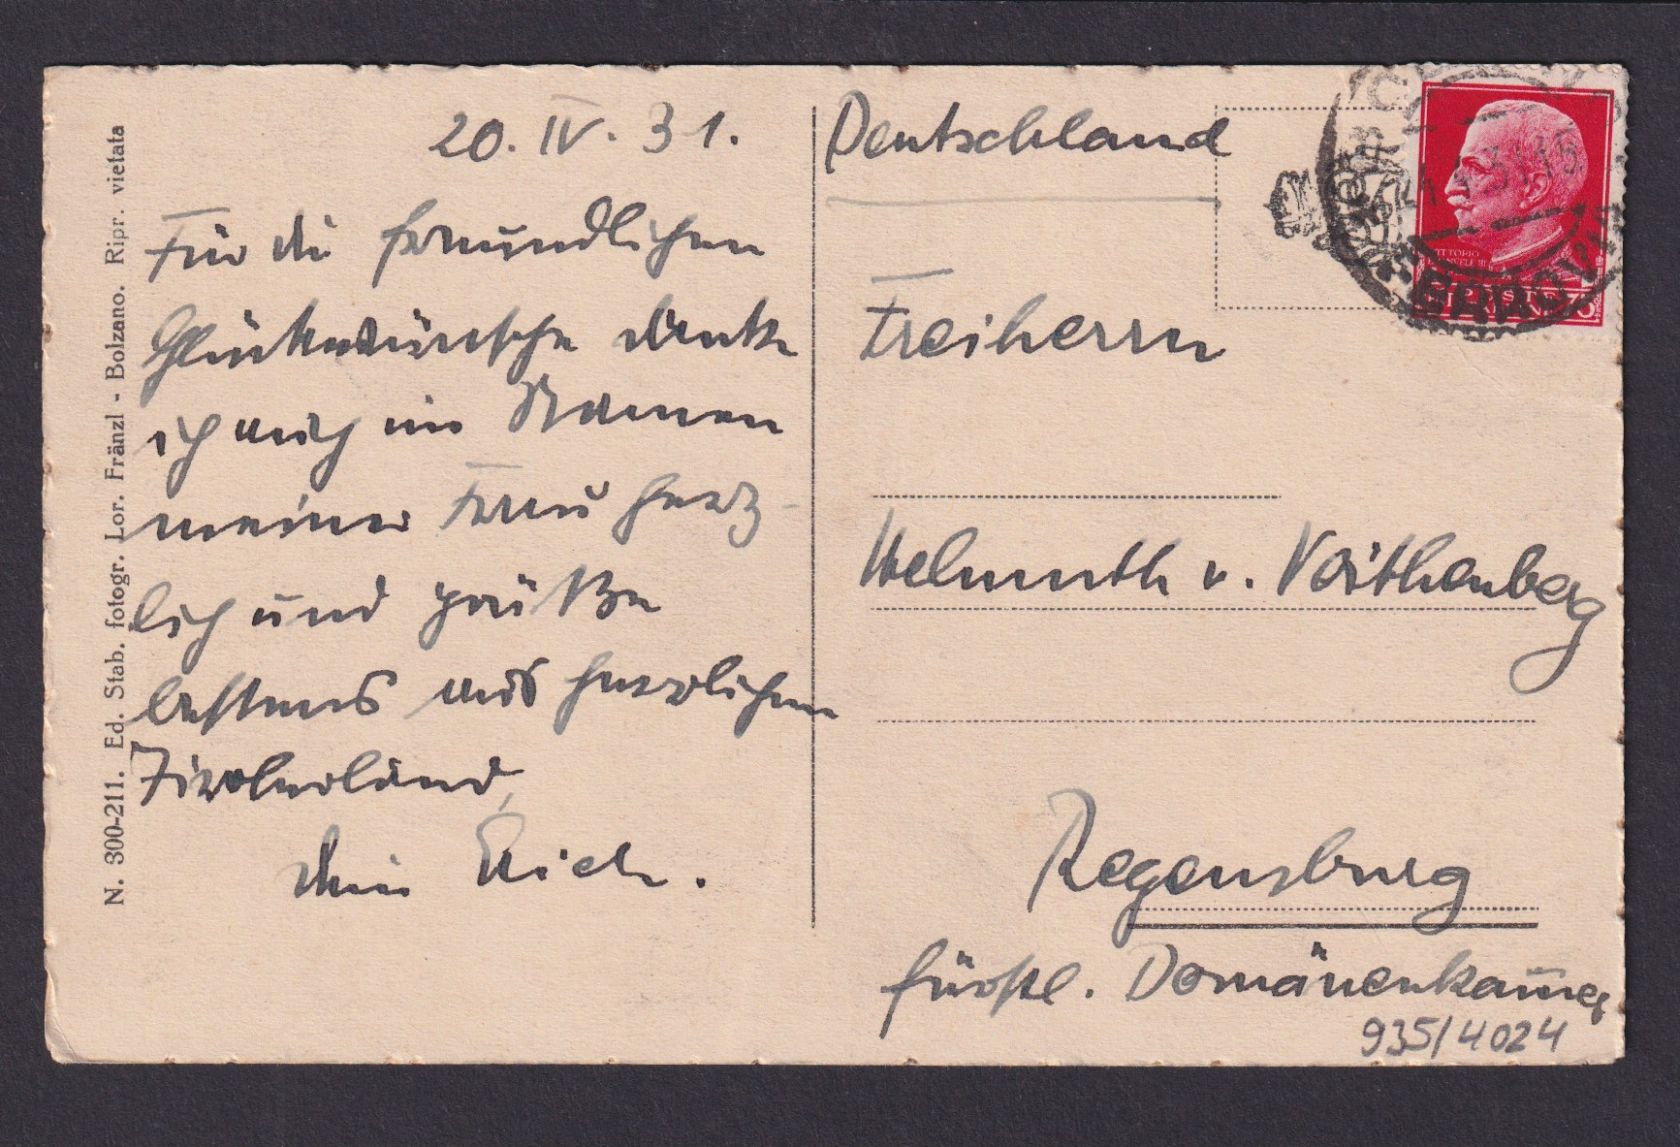 N. 300-211. Ed. Stab. fotogr. Lor. Fränzl - Bolzano. Ripr. vietata
20. IV. 31.
Für die freundlichen
Glückwünsche danke
ich auch im Namen
meiner Frau herz-
lich und grüße
bestens aus herrlichem
Tirolerland,
Dein Erich.
Deutschland
Freiherrn
Helmuth v. Voithenberg
Regensburg
fürstl. Domänenkam̅er
935/4024